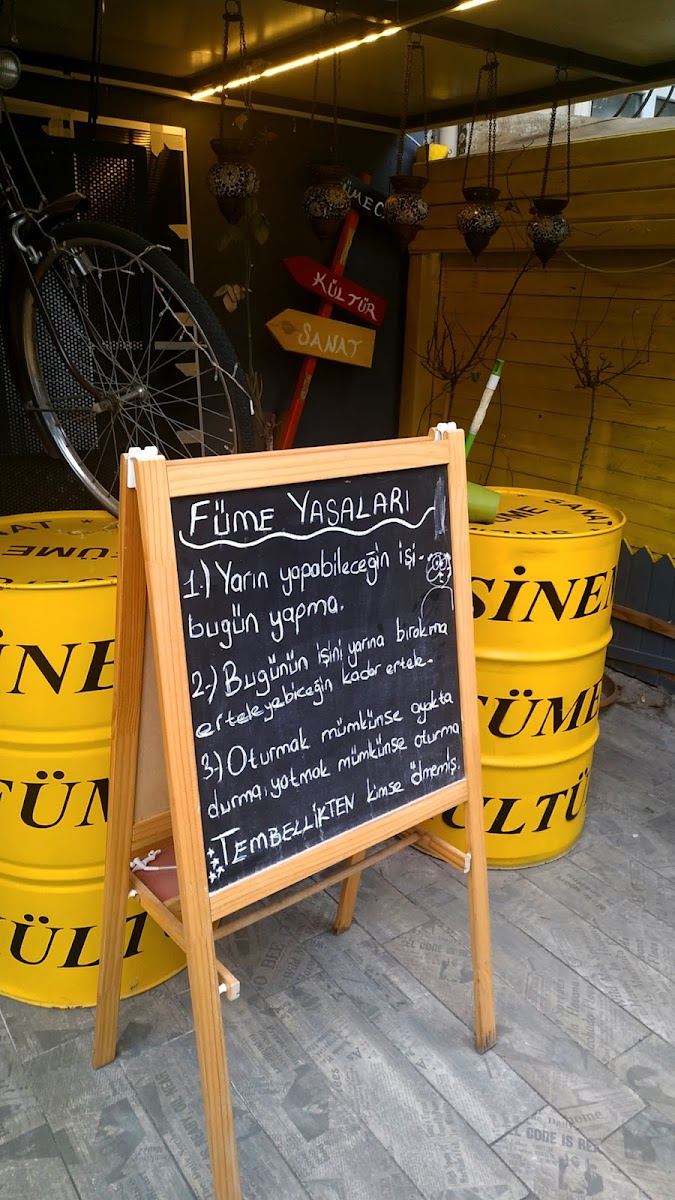 ÜMEC
KÜLTÜR
SANAT
FÜME YASALARI
1-) Yarın yapabileceğin işi-
bugün yapma.
2-) Bugünün işini yarına bırakma
erteleyebiceğin kadar ertele.
3-) Oturmak mümkünse ayakta
durma, yatmak mümkünse oturma
TEMBELLİKTEN kimse ölmemiş.
SANAT
FÜME
İNE
FÜM
KÜLT
FÜME SANAT
SİNEM
FÜME
KÜLTÜ
CODE IS REE